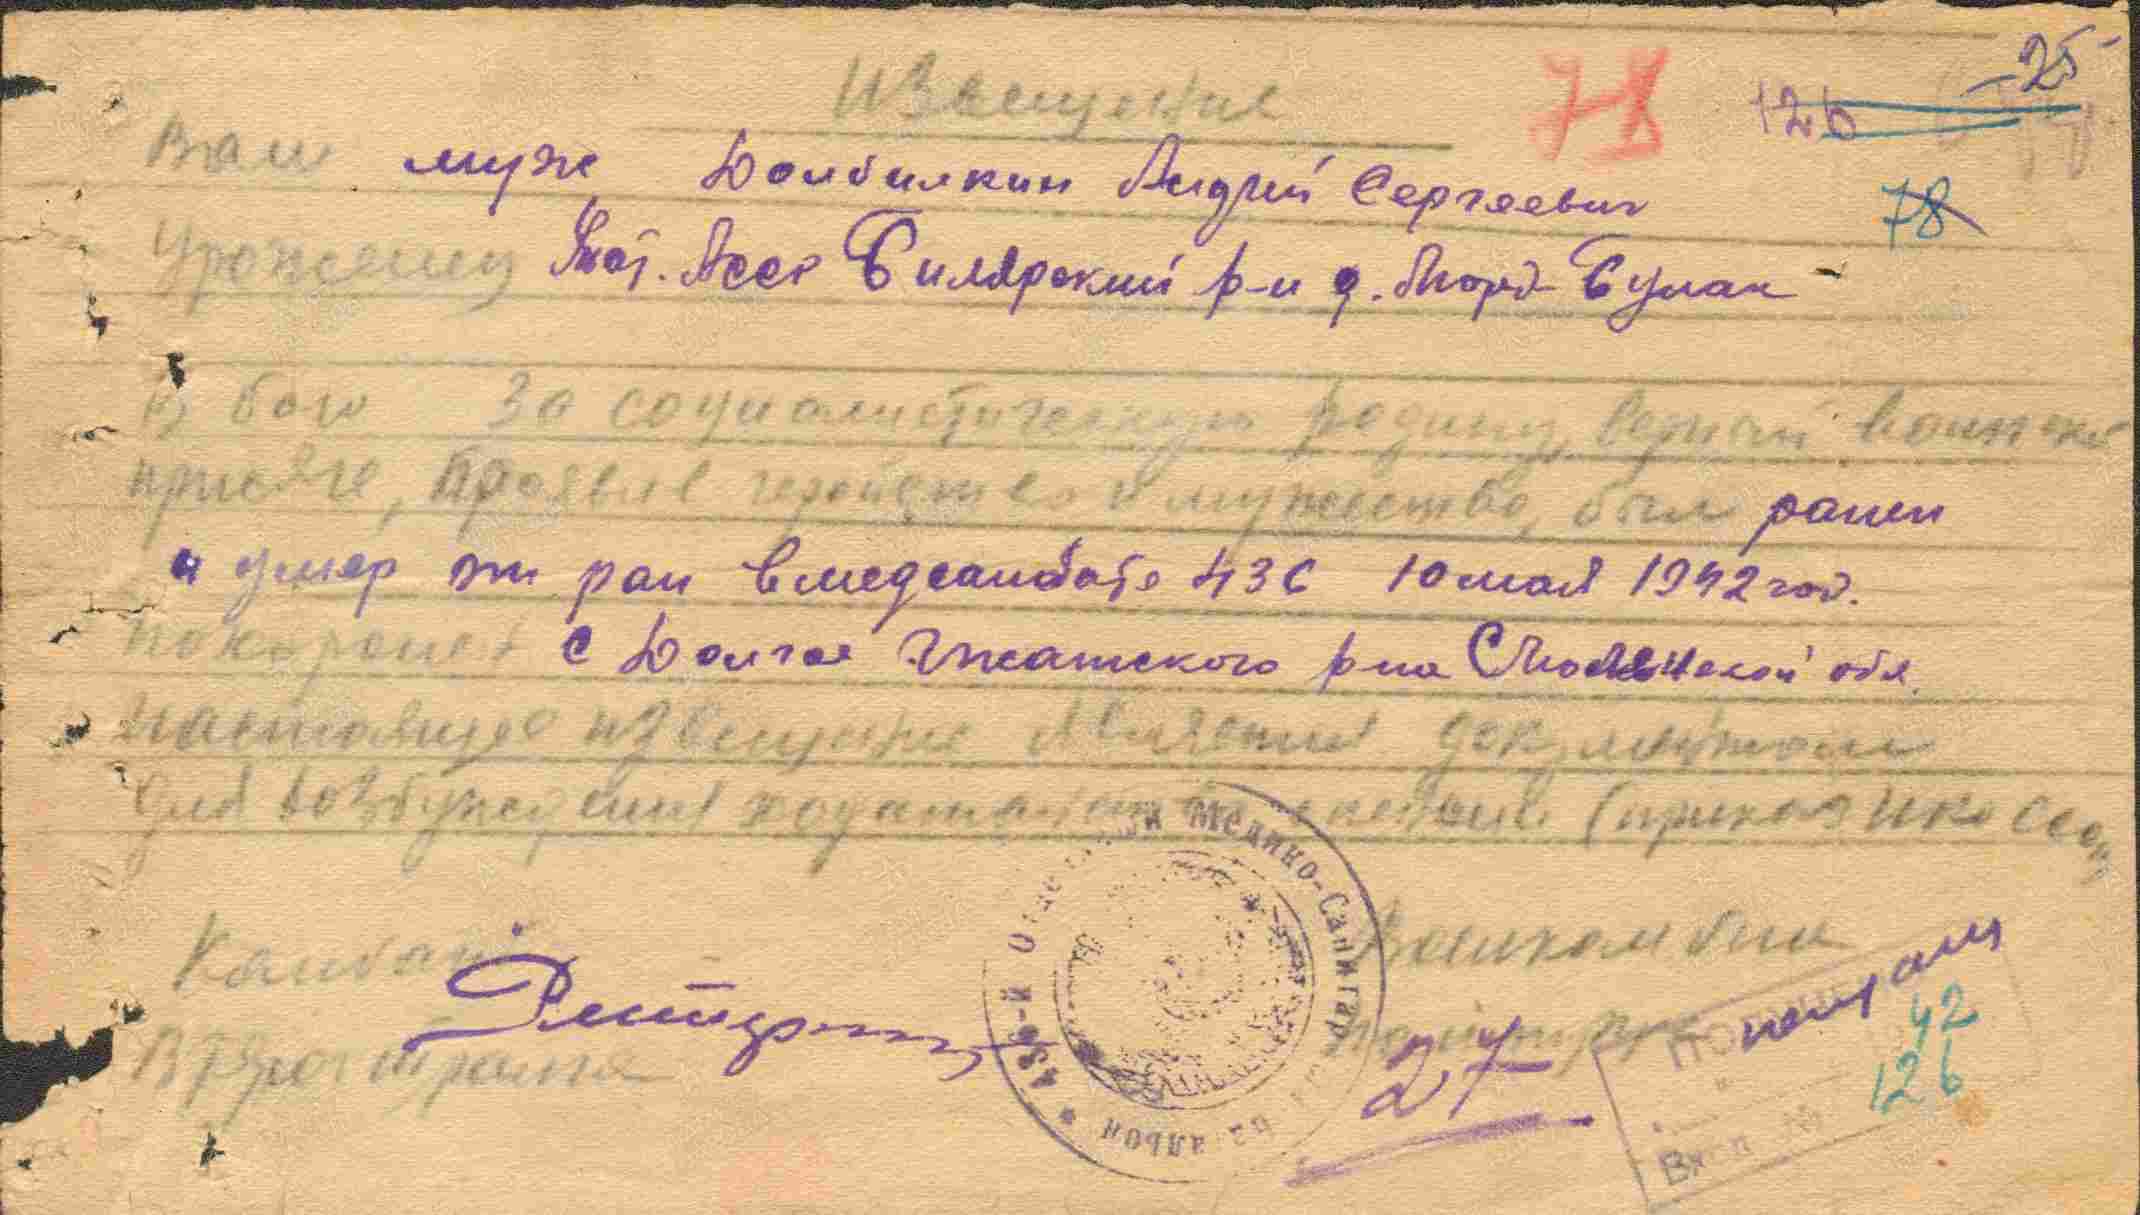 Извещение 78 126 -25
Ваш муж Долбилкин Андрей Сергеевич
78
Уроженец Тат. Асср Билярский р-н д. Морд-Булак
В бою за социалистическую родину, верный воинской
присяге, проявив геройство и мужество, был ранен
и умер от ран в медсанбате 436 10 мая 1942 год.
похоронен с Долгое Гжатского р-на Смоленской обл.
Настоящее извещение является документом
для возбуждения ходатайства о пенсии (приказ НКО СССР
Комбат Военком б-на
Врач
27 42
126
436-й Отдельный Медико-Санитарный батальон
Вход №